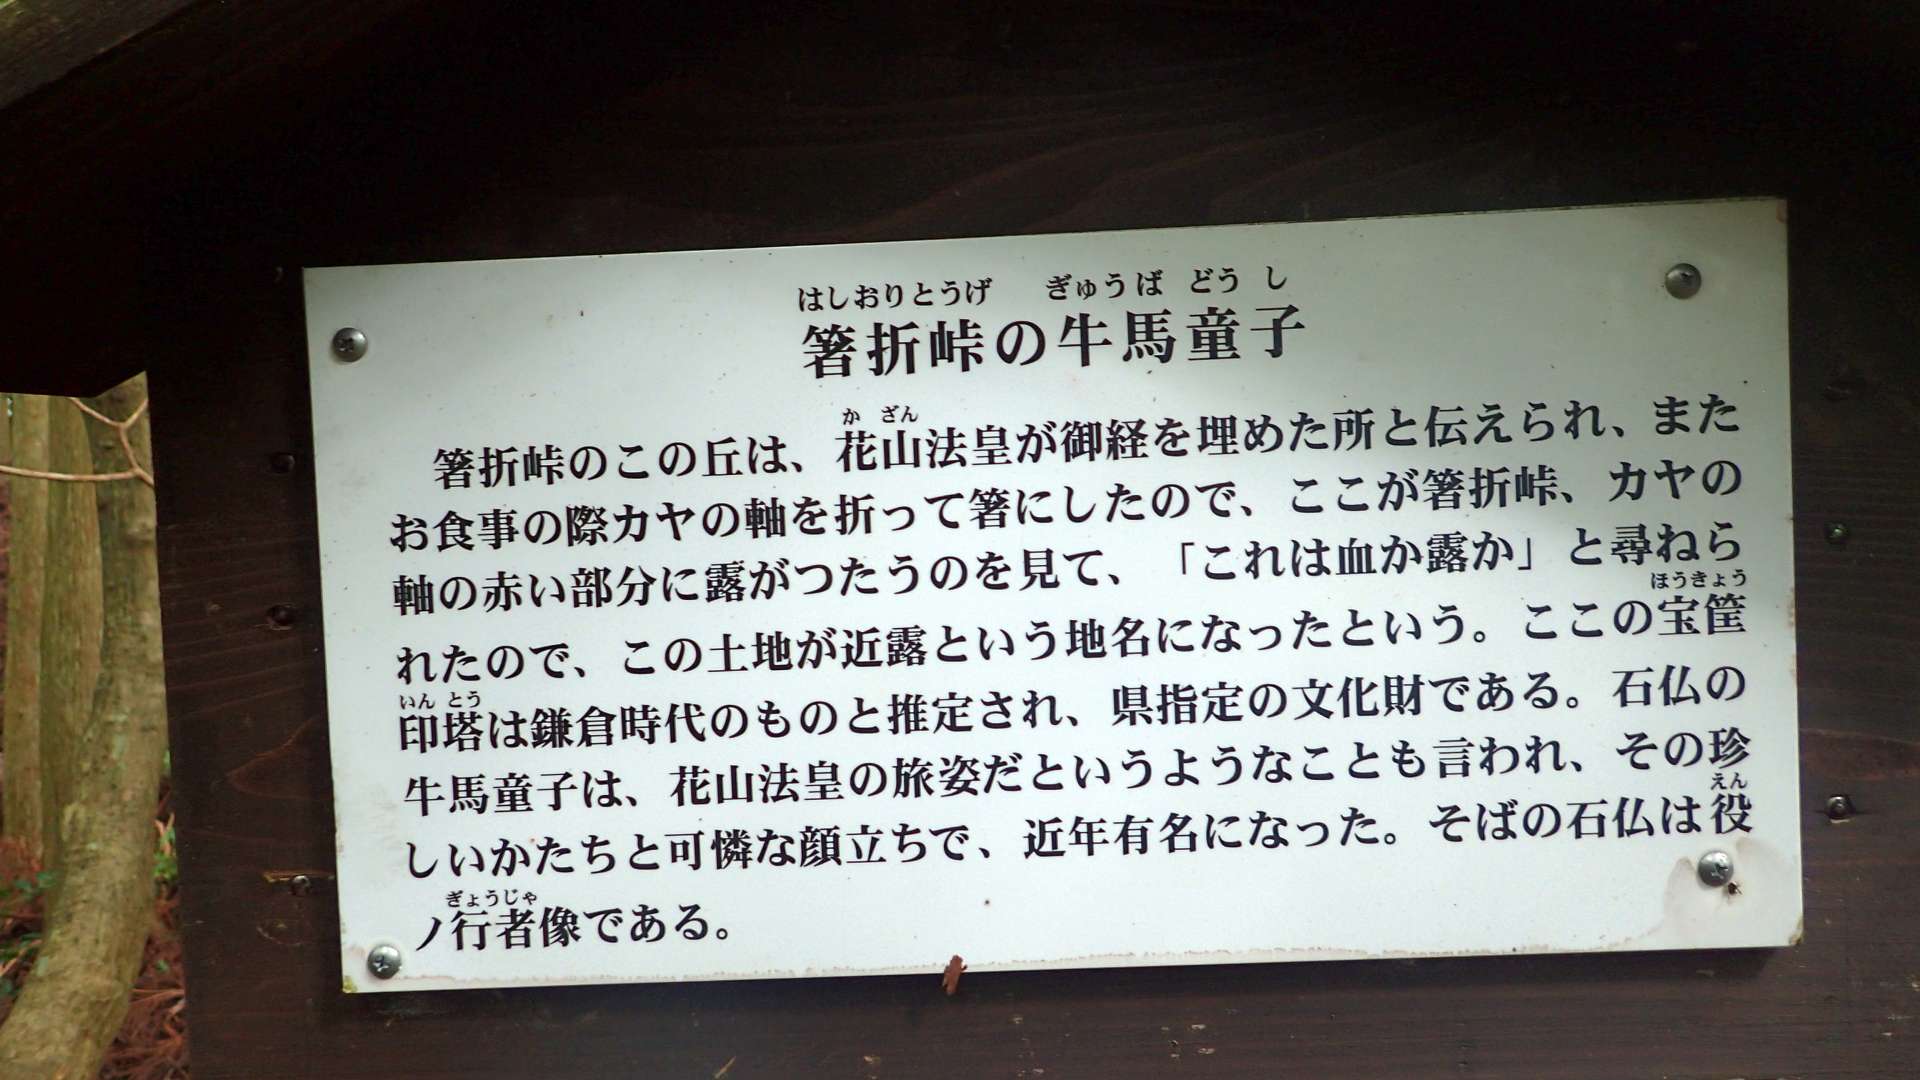 はしおりとうげ ぎゅうば どう し
箸折峠の牛馬童子
か ざん
箸折峠のこの丘は、花山法皇が御経を埋めた所と伝えられ、また
お食事の際カヤの軸を折って箸にしたので、ここが箸折峠、カヤの
軸の赤い部分に露がつたうのを見て、「これは血か露か」と尋ねら
ほうきょう
れたので、この土地が近露という地名になったという。ここの宝筐
いん とう
印塔は鎌倉時代のものと推定され、県指定の文化財である。石仏の
牛馬童子は、花山法皇の旅姿だというようなことも言われ、その珍
えん
しいかたちと可憐な顔立ちで、近年有名になった。そばの石仏は役
ぎょうじゃ
ノ行者像である。